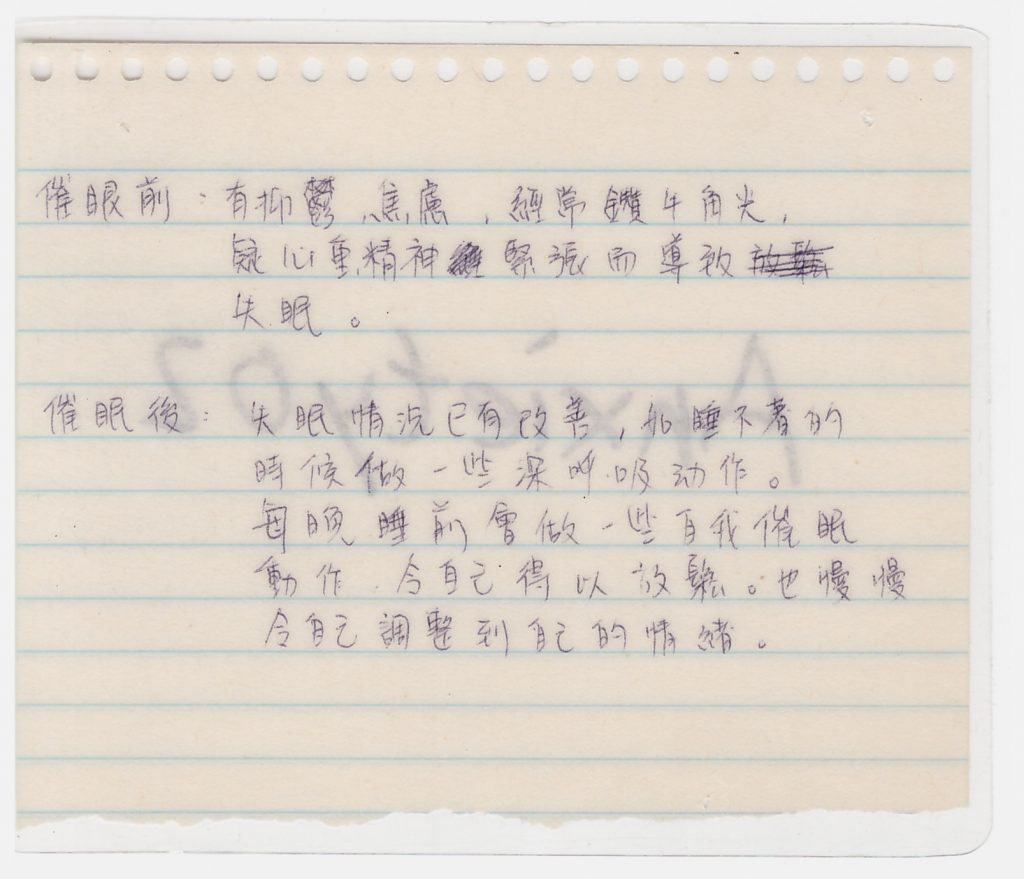 催眠前：有抑鬱、焦慮，經常鑽牛角尖，
疑心重,精神緊張而導致
失眠。
Anxiety03
催眠後：失眠情況已有改善，如睡不著的
時候做一些深呼吸动作。
每晚睡前會做一些自我催眠
動作.令自己得以放鬆。也慢慢
令自己調整到自己的情緒。